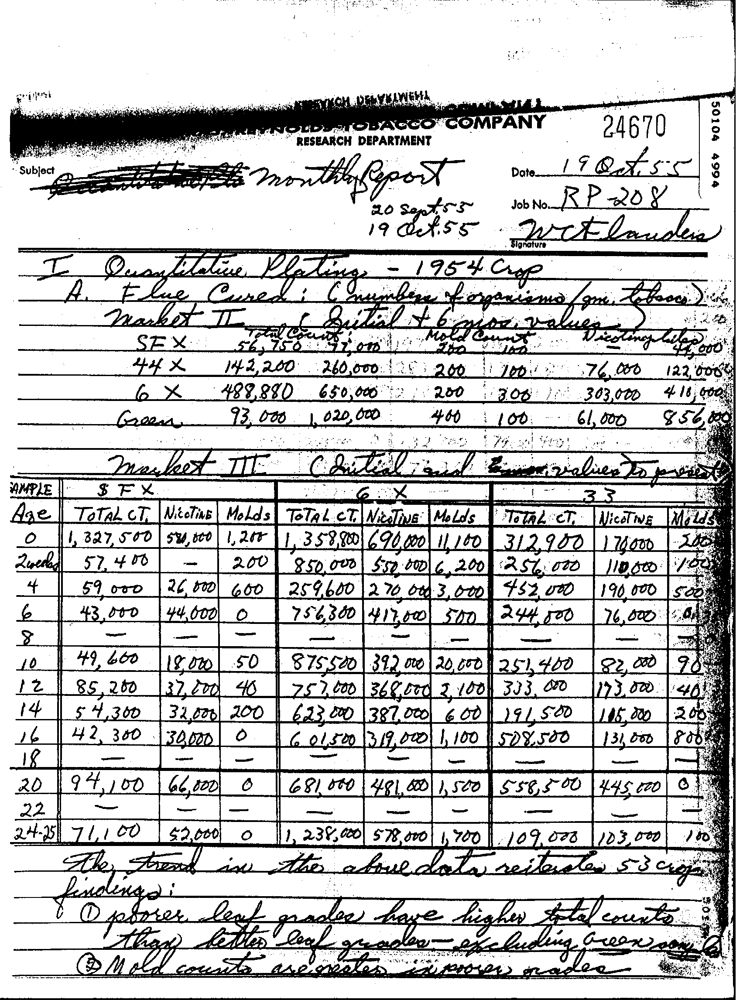 RESEARCH DEPARTMENT
REYNOLDS TOBACCO COMPANY 24670
RESEARCH DEPARTMENT
50104 4994
Subject Monthly Report Date 19 Oct. 55
20 Sept. 55 Job No. RP-208
19 Oct. 55 W C Flanders
Signature
I Quantitative Plating - 1954 Crop
A. Flue Cured: (numbers of organisms/gm. tobacco)
Market II (Initial + 6 mos. values)
Total Count Mold Count Nicotinophiles
SFX 56,750 97,000 200 100 — 44,000
44 X 142,200 260,000 200 100 76,000 122,000
6 X 488,880 650,000 200 300 303,000 410,000
Green 93,000 1,020,000 400 100 61,000 856,000
Market III (Initial and values to present)
SAMPLE $ F X 6 X 33
Age TOTAL CT. NICOTINE Molds TOTAL CT. NICOTINE Molds TOTAL CT. NICOTINE Molds
0 1,327,500 580,000 1,200 1,358,800 690,000 11,100 312,900 170,000 500
2 weeks 57,400 — 200 850,000 550,000 6,200 256,000 110,000 100
4 59,000 26,000 600 259,600 270,000 3,000 452,000 190,000 500
6 43,000 44,000 0 756,300 417,000 500 244,000 76,000 0
8 — — — — — — — — —
10 49,600 18,000 50 875,500 392,000 20,000 251,400 82,000 90
12 85,200 37,000 40 757,000 368,000 2,100 333,000 173,000 40
14 54,300 32,000 200 623,000 387,000 600 191,500 105,000 200
16 42,300 30,000 0 601,500 319,000 1,100 508,500 131,000 800
18 — — — — — — — — —
20 94,100 66,000 0 681,000 481,000 1,500 558,500 445,000 0
22 — — — — — — — — —
24-25 71,100 52,000 0 1,238,000 578,000 1,700 109,000 103,000 100
The trend in the above data reiterates 53 crop
findings:
① poorer leaf grades have higher total counts
than better leaf grades - excluding Green sample
② Mold counts are greater in poorer grades